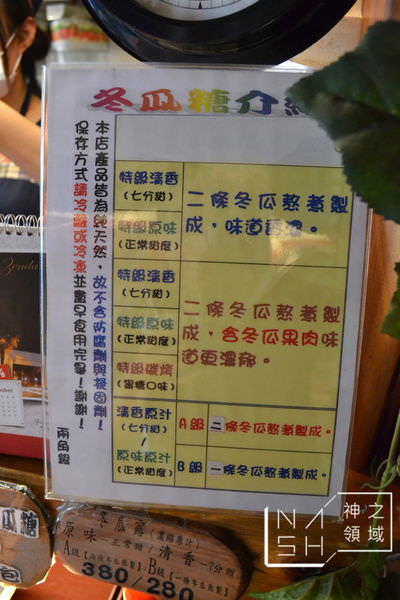 冬瓜糖介紹
本店產品皆為純天然，故不含防腐劑與換固劑！
保存方式請冷藏或冷凍並盡早食用完畢！謝謝！
兩角銀
特級清香
(七分甜)
特級原味
(正常甜度)
二條冬瓜熬煮製
成，味道香濃。
特級清香
(七分甜)
特級原味
(正常甜度)
特級碳燒
(蜜糖口味)
二條冬瓜熬煮製
成，含冬瓜果肉味
道更濃郁。
清香原汁
(七分甜)
/
原味原汁
(正常甜度)
A級
二條冬瓜熬煮製成。
B級
一條冬瓜熬煮製成。
瓜糖
包
冬瓜膏(濃縮原汁)
原味 正常甜/清香-7分甜
A級【兩條冬瓜熬製】/B級【一條冬瓜熬製】
380/280
NASH
神之
領域